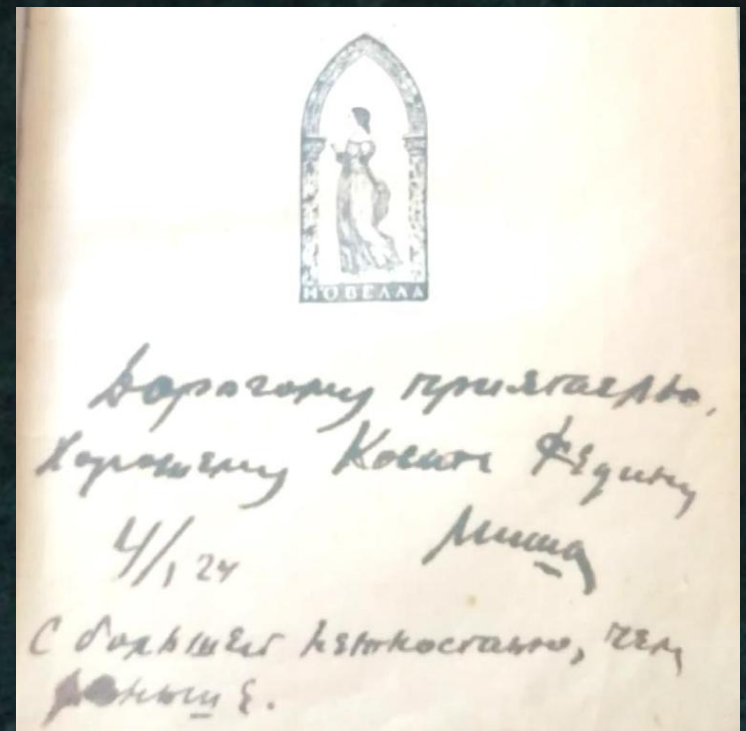 НОВЕЛЛА
Дорогому приятелю,
Хорошему Косте Федину
4/1 24 Миша
С большей нежностью, чем
раньше.